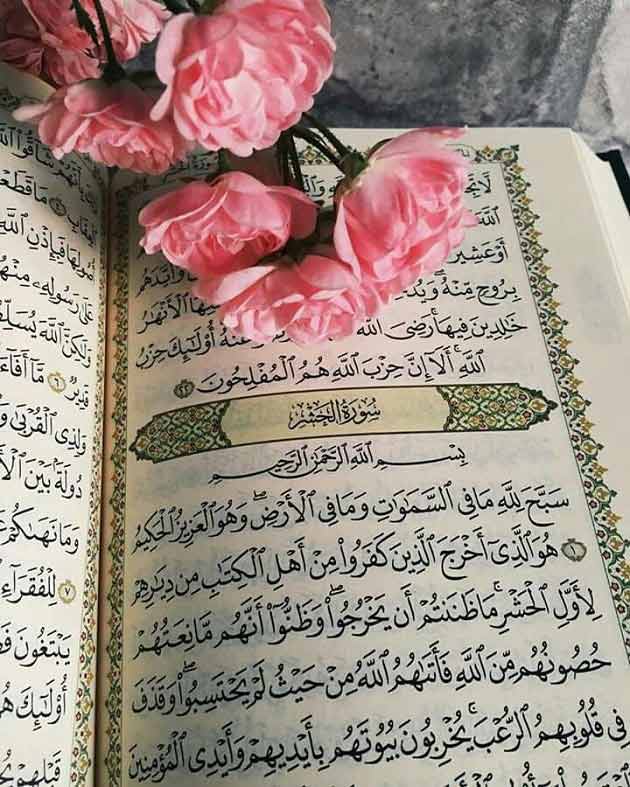 ٱللَّهَ
أَوْ عَشِيرَ وَأَيَّدَهُم
بِرُوحٍ مِّنْهُ وَيُدْ ٱلْأَنْهَٰرُ
خَٰلِدِينَ فِيهَا رَضِيَ ٱللَّهُ عَنْهُ أُو۟لَٰٓئِكَ حِزْبُ
ٱللَّهِ أَلَآ إِنَّ حِزْبَ ٱللَّهِ هُمُ ٱلْمُفْلِحُونَ ٢٢
سُورَةُ الحَشْرِ
بِسْمِ ٱللَّهِ ٱلرَّحْمَٰنِ ٱلرَّحِيمِ
سَبَّحَ لِلَّهِ مَا فِي ٱلسَّمَٰوَٰتِ وَمَا فِي ٱلْأَرْضِ ۖ وَهُوَ ٱلْعَزِيزُ ٱلْحَكِيمُ
١ هُوَ ٱلَّذِيٓ أَخْرَجَ ٱلَّذِينَ كَفَرُوا۟ مِنْ أَهْلِ ٱلْكِتَٰبِ مِن دِيَٰرِهِمْ
لِأَوَّلِ ٱلْحَشْرِ ۚ مَا ظَنَنتُمْ أَن يَخْرُجُوا۟ ۖ وَظَنُّوٓا۟ أَنَّهُم مَّانِعَتُهُمْ
حُصُونُهُم مِّنَ ٱللَّهِ فَأَتَىٰهُمُ ٱللَّهُ مِنْ حَيْثُ لَمْ يَحْتَسِبُوا۟ ۖ وَقَذَفَ
فِي قُلُوبِهِمُ ٱلرُّعْبَ ۚ يُخْرِبُونَ بُيُوتَهُم بِأَيْدِيهِمْ وَأَيْدِي ٱلْمُؤْمِنِينَ
بِأَنَّهُمْ شَآقُّوا۟ ٱللَّهَ
ٱلْعِقَابِ ٤ مَا قَطَعْ
أُصُولِهَا فَبِإِذْنِ ٱللَّهِ
عَلَىٰ رَسُولِهِۦ مِنْهُمْ
وَلَٰكِنَّ ٱللَّهَ يُسَلِّطُ
قَدِيرٌ ٦ مَّآ أَفَآءَ
وَلِذِي ٱلْقُرْبَىٰ
دُولَةًۢ بَيْنَ
وَمَا نَهَىٰكُمْ
٧ لِلْفُقَرَآءِ
يَبْتَغُونَ
أُو۟لَٰٓئِكَ
قَبْلِهِمْ